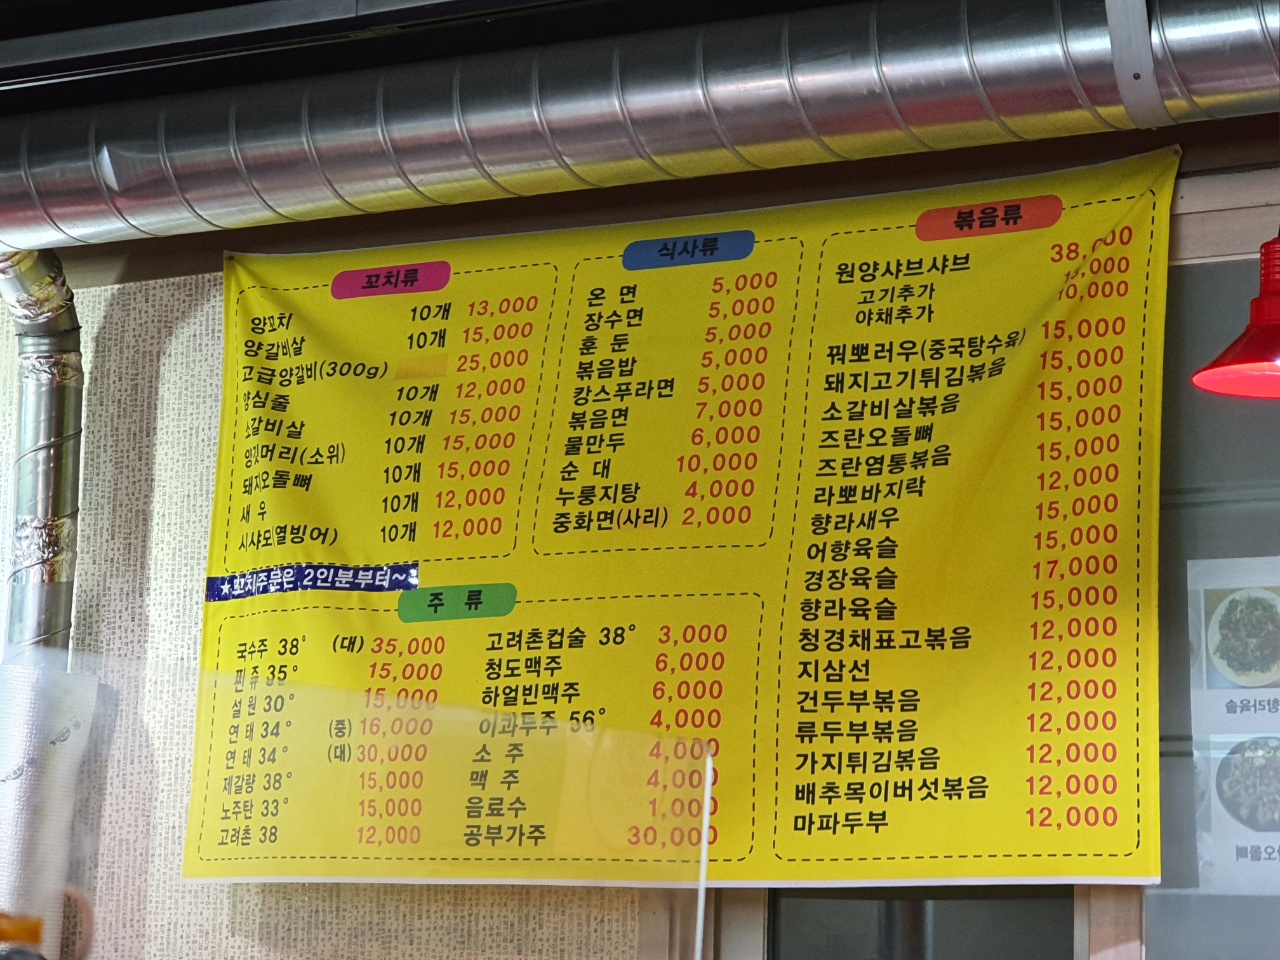 꼬치류
양꼬치 10개 13,000
양갈비살 10개 15,000
고급양갈비(300g) 25,000
양심줄 10개 12,000
소갈비살 10개 15,000
양깃머리(소위) 10개 15,000
돼지오돌뼈 10개 15,000
새우 10개 12,000
시샤모(열빙어) 10개 12,000
★꼬치주문은 2인분부터~
식사류
온 면 5,000
장수면 5,000
훈 둔 5,000
볶음밥 5,000
캉스푸라면 5,000
볶음면 7,000
물만두 6,000
순 대 10,000
누룽지탕 4,000
중화면(사리) 2,000
주 류
국수주 38° (대) 35,000
찐쥬 35° 15,000
설원 30° 15,000
연태 34° (중) 16,000
연태 34° (대) 30,000
제갈량 38° 15,000
노주탄 33° 15,000
고려촌 38 12,000
고려촌컵술 38° 3,000
청도맥주 6,000
하얼빈맥주 6,000
이과두주 56° 4,000
소 주 4,000
맥 주 4,000
음료수 1,000
공부가주 30,000
볶음류
원양샤브샤브
고기추가
야채추가 10,000
꿔뽀러우(중국탕수유) 15,000
돼지고기튀김볶음 15,000
소갈비살볶음 15,000
즈란오돌뼈 15,000
즈란염통볶음 15,000
라뽀바지락 12,000
향라새우 15,000
어향육슬 15,000
경장육슬 17,000
향라육슬 15,000
청경채표고볶음 12,000
지삼선 12,000
건두부볶음 12,000
류두부볶음 12,000
가지튀김볶음 12,000
배추목이버섯볶음 12,000
마파두부 12,000